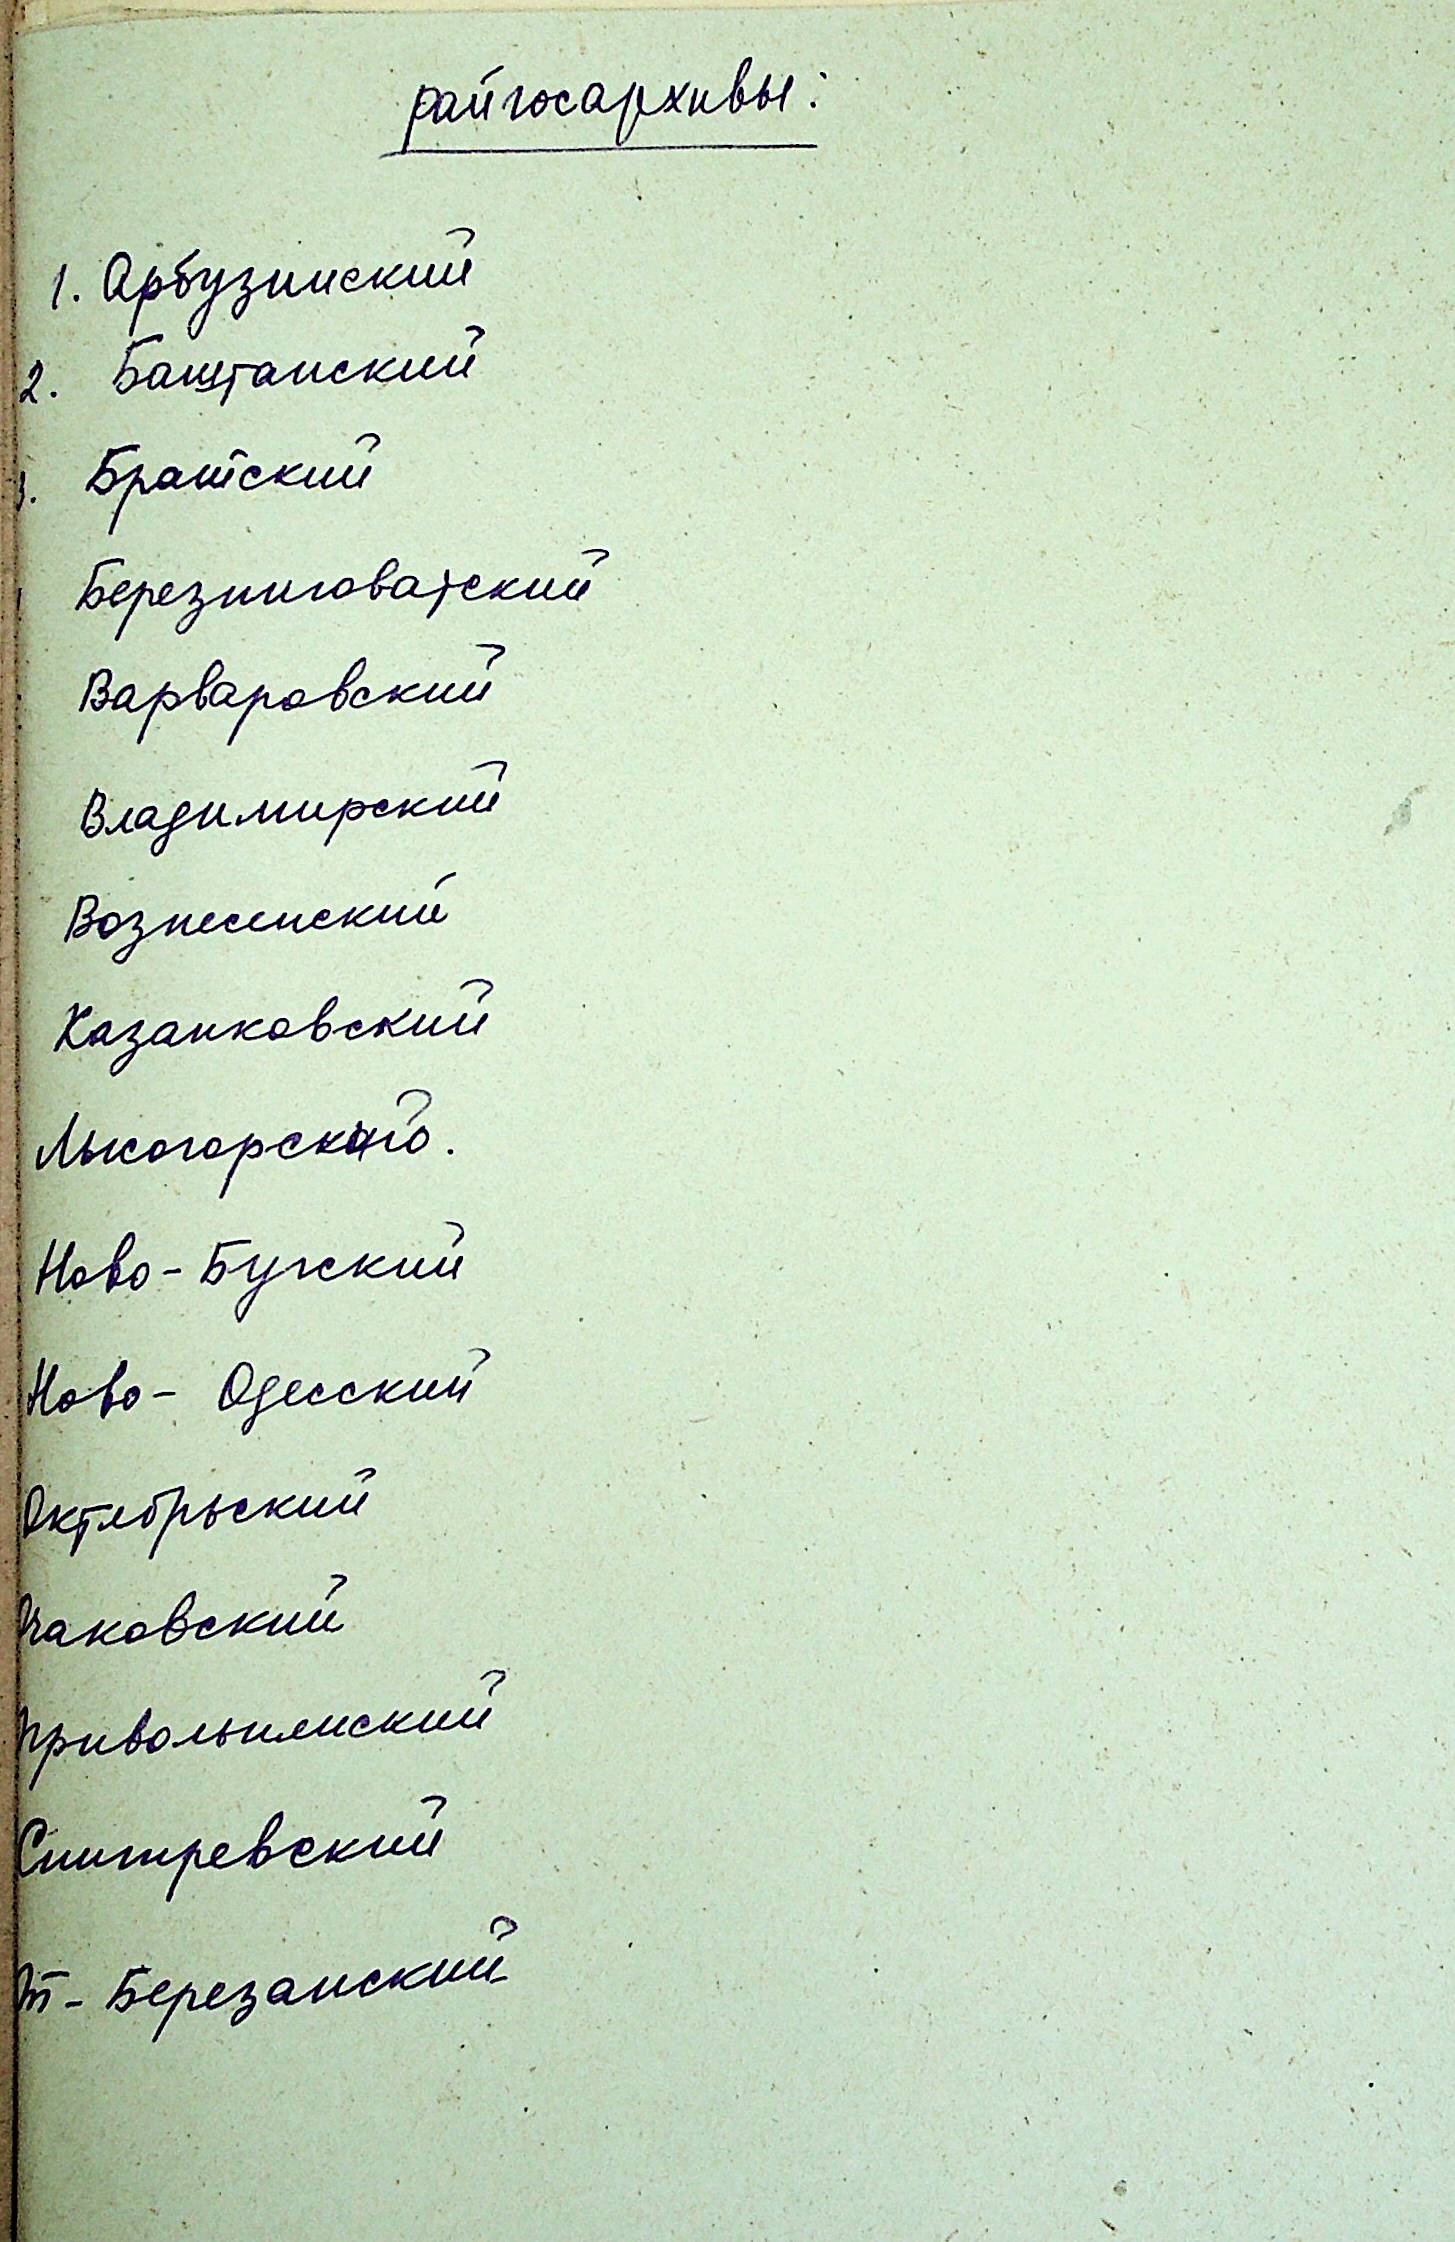 райгосархивы:
1. Арбузинский
2. Баштанский
3. Братский
Березниговатский
Варваровский
Владимирский
Вознесенский
Казанковский
Лысогорского.
Ново-Бугский
Ново- Одесский
Октябрьский
Очаковский
Привольнянский
Снигиревский
Т- Березанский